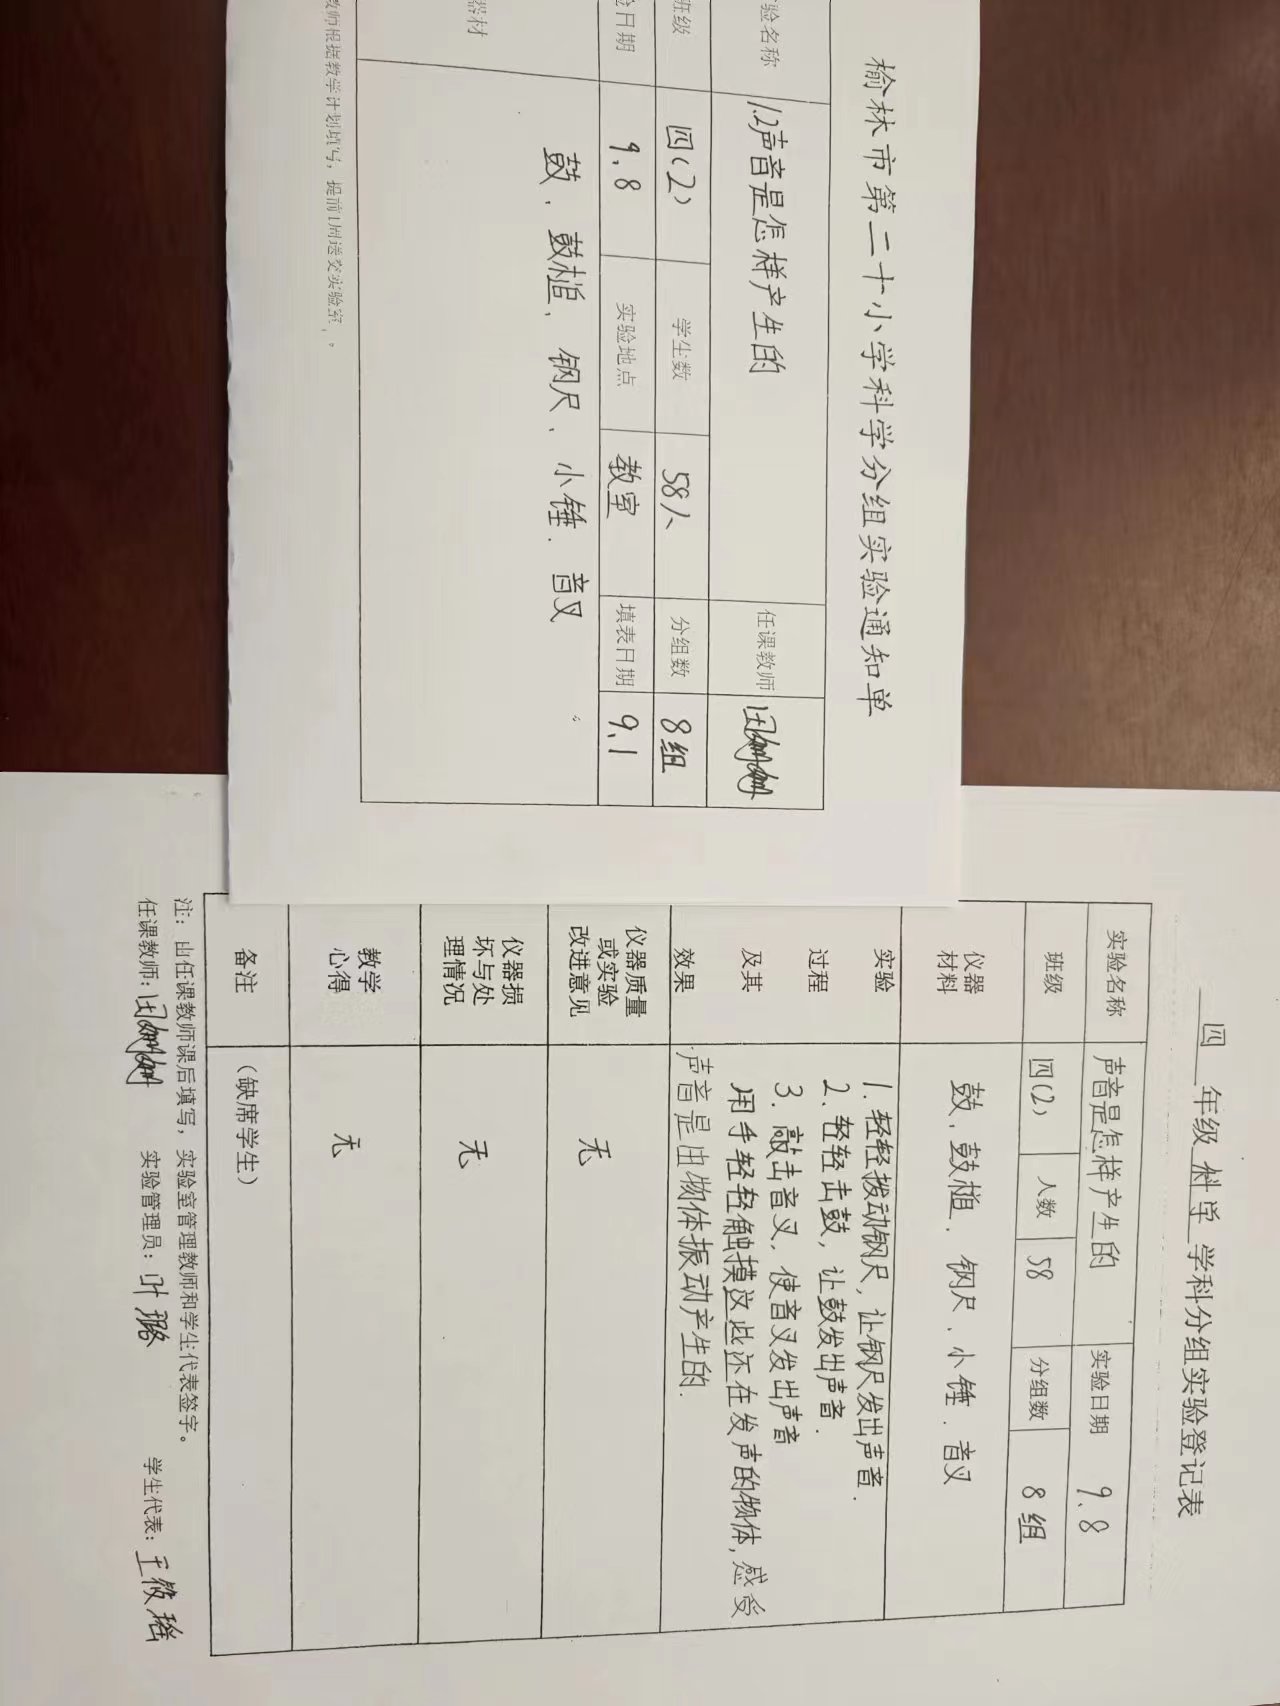 榆林市第二十小学科学分组实验通知单
验名称 1.2声音是怎样产生的 任课教师
班级 四(2) 学生数 58人 分组数 8组
日期 9.8 实验地点 教室 填表日期 9.1
器材 鼓、鼓槌、钢尺、小锤、音叉
教师根据教学计划填写,提前1周送交实验室
四 年级 科学 学科分组实验登记表
实验名称 声音是怎样产生的 实验日期 9.8
班级 四(2) 人数 58 分组数 8组
仪器材料 鼓、鼓槌、钢尺、小锤、音叉
实验过程及其效果
1. 轻轻拨动钢尺,让钢尺发出声音.
2. 轻轻击鼓,让鼓发出声音.
3. 敲击音叉,使音叉发出声音
用手轻轻触摸这些还在发声的物体,感受
声音是由物体振动产生的.
仪器质量或实验改进意见 无
仪器损坏与处理情况 无
教学心得 无
备注 (缺席学生)
注:由任课教师课后填写,实验室管理教师和学生代表签字。
任课教师: 实验管理员:叶璐 学生代表:王筱瑶